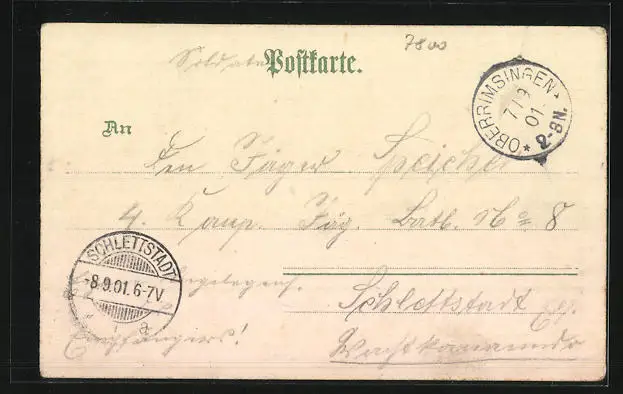 7800
Soldaten Postkarte.
OBERRIMSINGEN
7/9
01.
2-8N.
An
Den Jäger Speicher
4. Komp. Jäg. Batl. No 8
SCHLETTSTADT
-8.9.01.6-7V.
a
Schlettstadt
Empfängers!
Wachtkommando